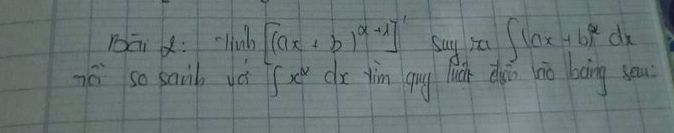 Bài 2: Tính [(ax + b)^{α+1}]' suy ra ∫(ax + b)^α dx
so sánh với ∫x^α dx tìm quy luật điền vào bảng sau: